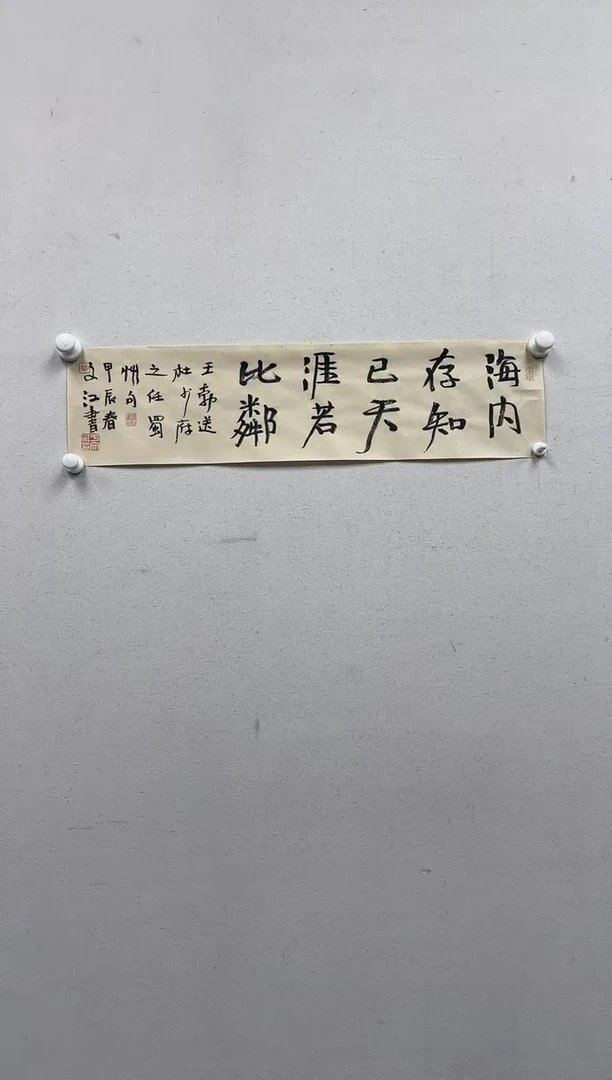 海内
存知
己天
涯若
比鄰
王勃送
杜少府
之任蜀
州句
甲辰春
江書